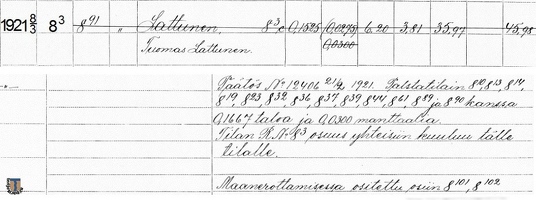 1921 8/3 8³ 8⁹¹ " Lattunen. 8³c 0,1525 (0,0275) 6.20 3,81 35,97 45,98
Tuomas Lattunen. 0,0300
Päätös No 12406 1921. Palstatilain 8¹⁰, 8¹³, 8¹⁴,
8¹⁹, 8²³, 8³², 8³⁶, 8³⁷, 8³⁹, 8⁴⁴, 8⁶¹ 8⁸⁹ ja 8⁹⁰ kanssa
0,1667 taloa ja 0,0300 manttaalia.
Tilan R.N:o 8³, osuus yhteisiin kuuluu tälle
tilalle.
Maanerottamisessa ositettu osiin 8¹⁰¹, 8¹⁰²